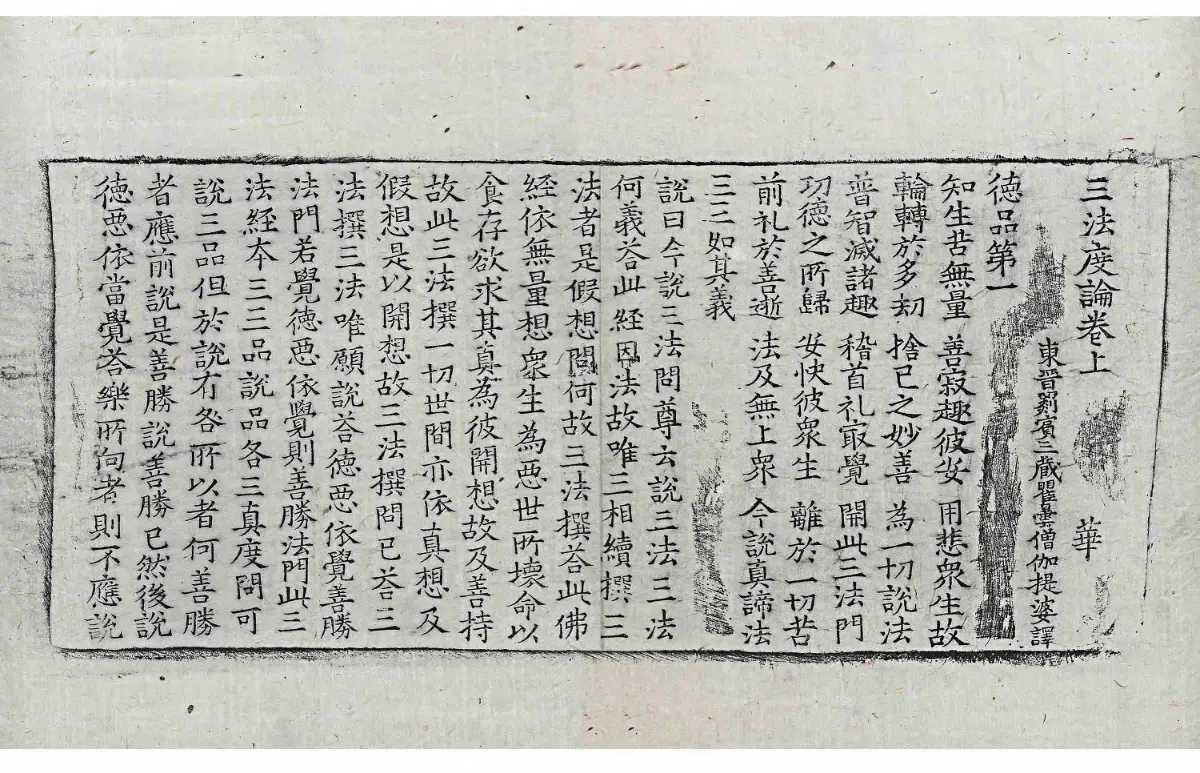 三法度論卷上 華
東晉罽賓三藏瞿曇僧伽提婆譯
德品第一
知生苦無量 善寂趣彼安 用悲衆生故
輪轉於多劫 捨己之妙善 為一切說法
普智滅諸趣 稽首礼㝡覺 開此三法門
功德之所歸 安快彼衆生 離於一切苦
前礼於善逝 法及無上衆 今說真諦法
三三如其義
說曰今說三法問尊云說三法三法
何義荅此經因法故唯三相續撰三
法者是假想問何故三法撰荅此佛
經依無量想衆生為惡世所壞命以
食存欲求其真為彼開想故及善持
故此三法撰一切世間亦依真想及
假想是以開想故三法撰問已荅三
法撰三法唯願說荅德惡依覺善勝
法門若覺德惡依覺則善勝法門此三
法經本三三品說品各三真度問可
說三品但於說有各所以者何善勝
者應前說是善勝說善勝已然後說
德惡依當覺荅樂所向者則不應說